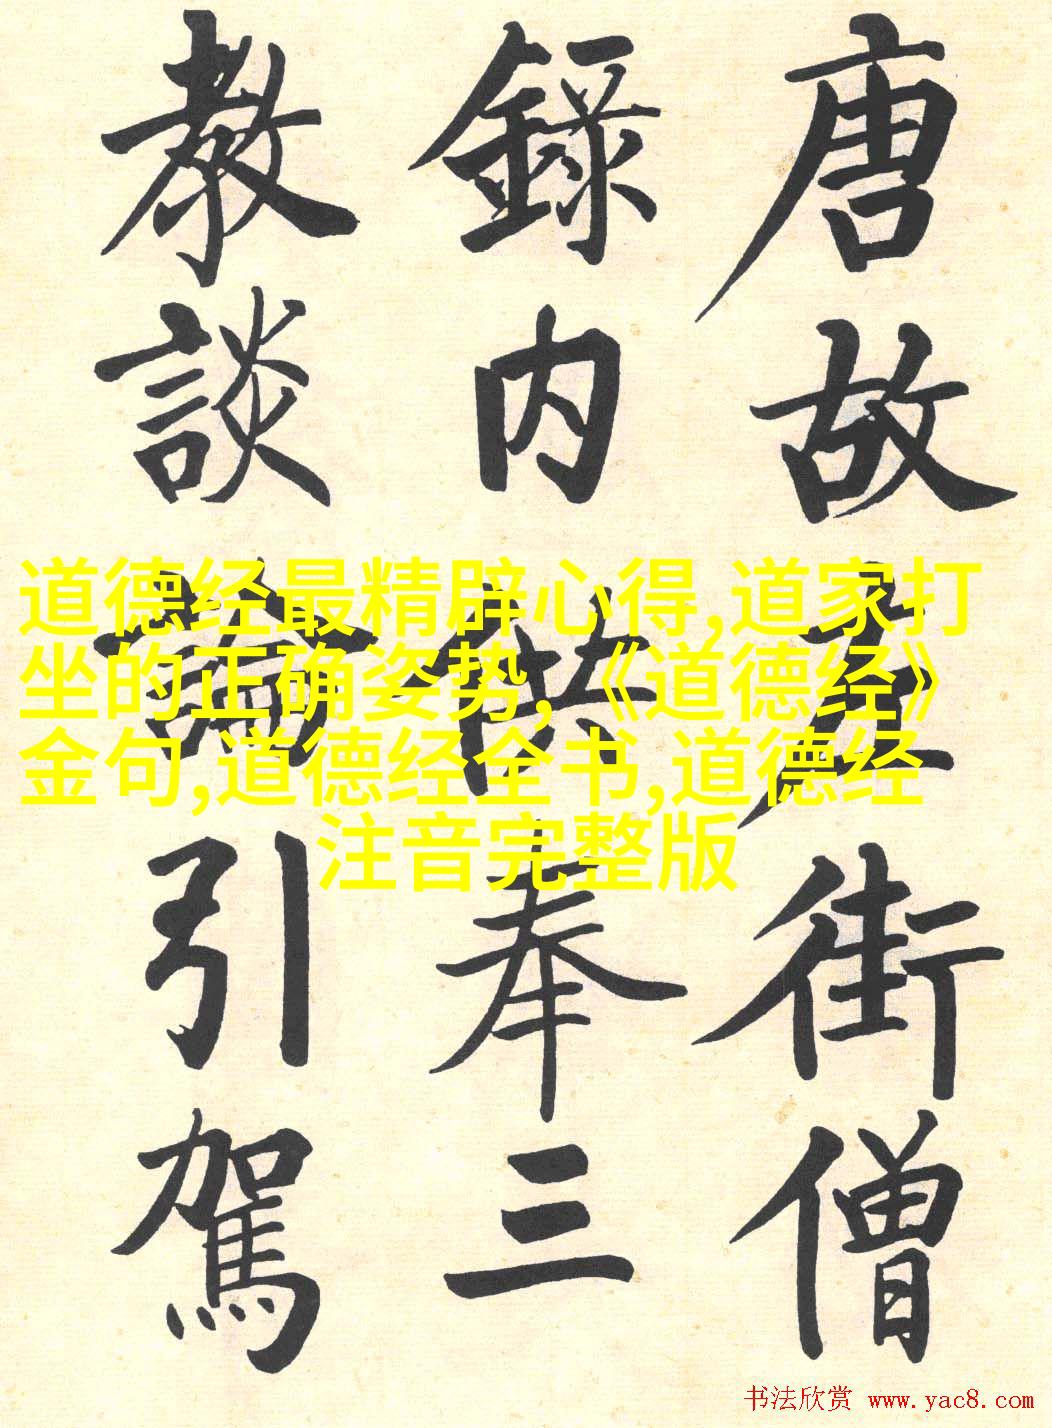 唐故左街僧
錄内供奉三
教談論引駕
道德经最精辟心得,道家打
坐的正确姿势,《道德经》
金句,道德经全书,道德经
注音完整版
书法欣赏 www.yac8.com